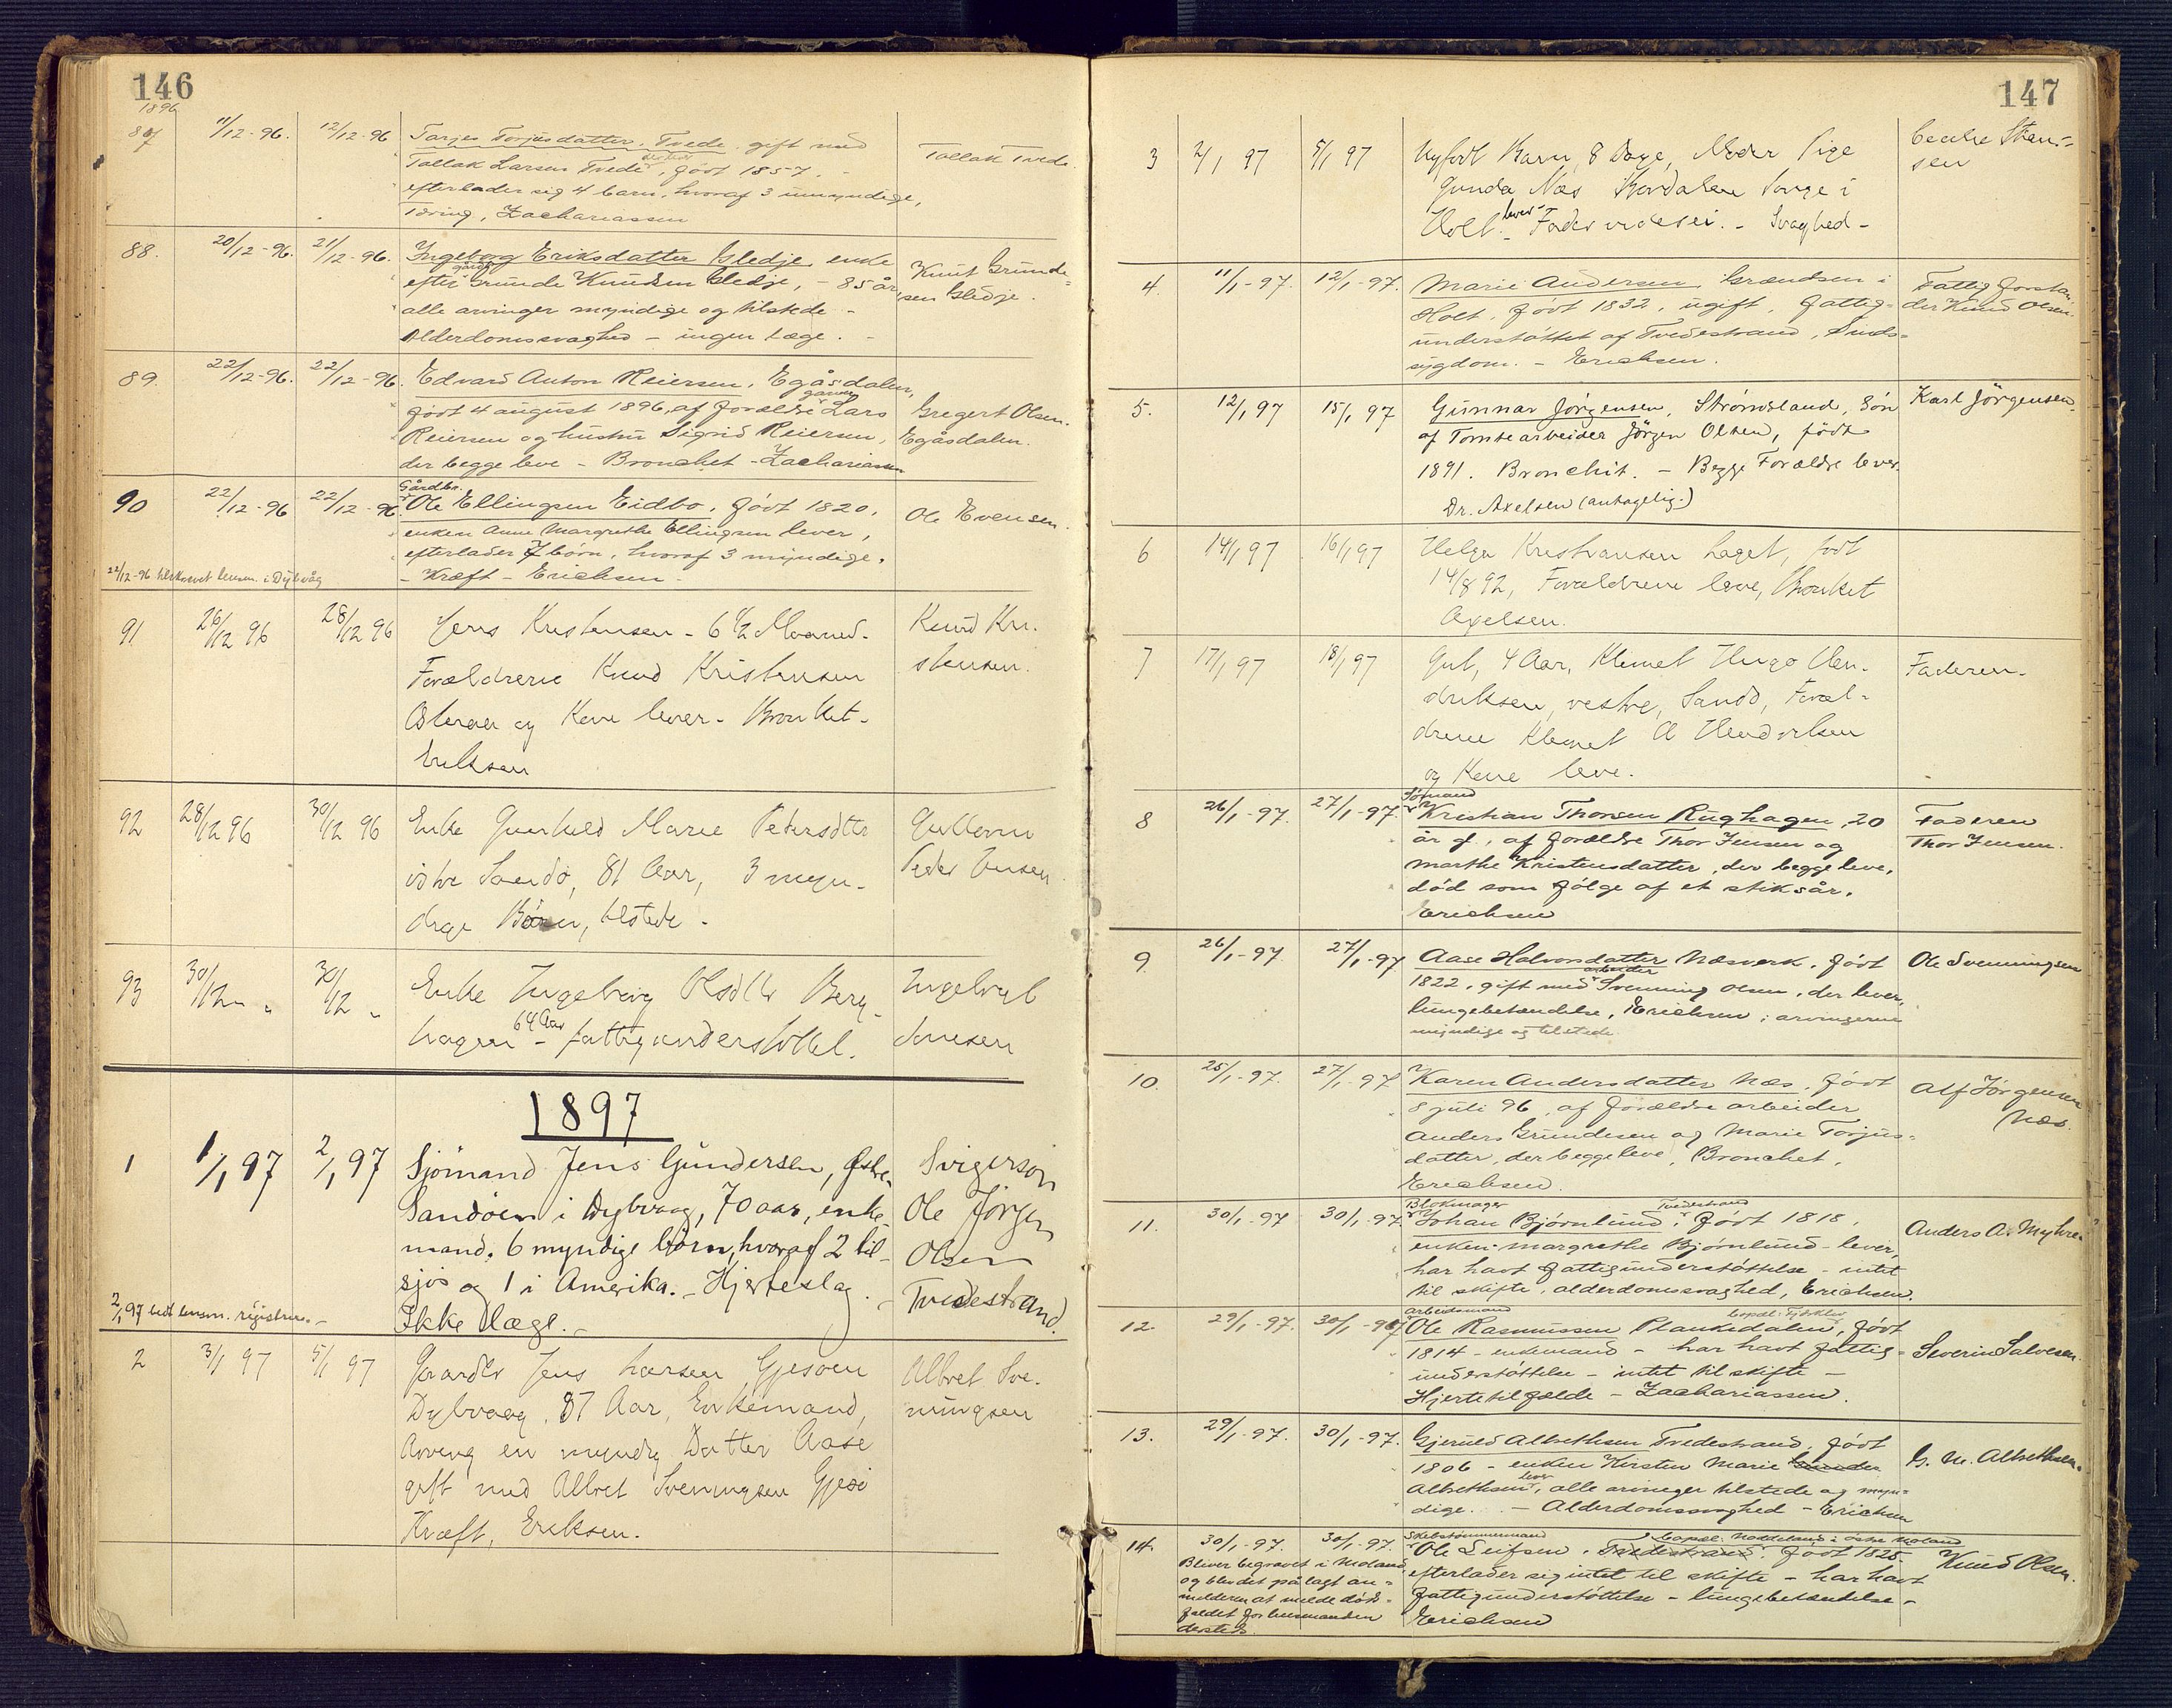 146
1896
87 11/12-96. 12/12-96 Tarjer Torjusdatter, Tvede gift med Tallak Tvede.
Tallak Larsen Tvede, født 1857. -
efterlader sig 4 barn, hvoraf 3 umyndige,
Tæring, Zachariassen
88. 20/12-96. 21/12-96. Ingeborg Eriksdatter Gledje, enke Knut Grunde-
efter gårdbr Grunde Knudsen Gledje, - 85 år, sen Gledje.
alle arvinger myndige og tilstede -
Alderdomssvaghed - ingen Læge. -
89. 22/12-96. 22/12-96. Edvard Anton Reiersen, Egåsdalen,
født 4 august 1896, af forældre Lars Gregert Olsen.
Reiersen og hustru Sigrid Reiersen, Egåsdalen.
der begge leve - Bronchet - Zachariassen
Gårdbr.
90 22/12-96 22/12-96 Ole Ellingsen Eidbo, født 1820, Ole Evensen.
enken Anne Margrethe Ellingsen lever,
efterlader 7 børn, hvoraf 3 myndige.
22/12-96 tilskrevet lensm. i Dybvåg - Kræft - Erichsen -
91 26/12 96 28/12 96 Jens Kristensen - 6 1/2 Maaned. Knud Kri-
Forældrene Knud Kristensen stensen.
og Kone lever - Bronket -
Eriksen
92 28/12 96 30/12 96 Enke Gunhild Marie Pedersdtr
østre Sandø, 81 Aar, 3 myn- Peder Jensen
dige Børn, tilstede -
93 30/12 " 30/12 " Enke Ingeborg Olsdtr Berg- Ingebregt
hagen 64 Aar - fattigunderstøttet. Jonesen
1897
1 1/1 97 2/1 97 Sjømand Jens Gundersen, Østre Svigersøn
Sandøen i Dybvaag, 70 aar, enke- Ole Jörgen
mand. 6 myndige børn, hvoraf 2 til- Olsen
sjös og 1 i Amerika. - Hjerteslag. - Tvedestrand.
2/1 97 bedt lensm. registrere. - Ikke læge. -
2 3/1 97 5/1 97 Gaardbr Jens Larsen Gjesøen Albret Sve-
Dybvaag, 87 Aar, Enkemand, nungsen
Arving en myndig Datter Aase
gift med Albret Sveningsen Gjesø
Kræft, Eriksen.
147
3 2/1 97 5/1 97 Nyfødt Barn, 8 Dage, Moder Pige
Gunda Næs Songe i sen
Holt lever - Fader vides ei. - Svaghed -
4. 11/1-97. 12/1-97. Marie Andersen, Grændsen i Fattigforstan-
Holt, født 1832, ugift, fattig- der Knud Olsen.
understøttet af Tvedestrand, Sinds-
sygdom. - Erichsen.
5. 12/1 97 15/1 97 Gunnar Jörgensen, Strömsland, Sön Karl Jörgensen.
af Tomtearbeider Jörgen Olsen, född
1891. Bronchit. - Begge Forældre lever
Dr. Axelsen (antagelig.)
6 14/1 97 16/1 97 Helga Kristiansen Laget, født
14/8 92, Forældrene leve, Bronket
Axelsen.
7 17/1 97 18/1 97 Gut, 4 Aar, Klemet Hugo Hen- Faderen.
driksen, vestre Sandø, Foræl-
drene Klemet O Hendriksen
og Kone leve.
Sømand
8 26/1-97. 27/1-97. Kristian Thorsen Rughagen, 20 Faderen
år gl., af forældre Thor Jensen og Thor Jensen.
Marthe Kristensdatter, der begge leve,
død som følge af et stiksår.
Erichsen
9 26/1-97. 27/1-97 Aase Halvorsdatter Næsverk, født Ole Svenningsen
1822, gift med arbeider Svenning Olsen, der lever,
lungebetændelse, Erichsen; arvingerne
myndige og tilstede
10. 25/1-97. 27/1-97 Karen Andersdatter Næs, født Alf Jørgensen
8 juli 96, af forældre arbeider Næs.
Anders Grundesen og Marie Torjus-
datter, der begge leve, Bronchet,
Erichsen.
Blokmager Tvedestrand
11. 30/1-97 30/1-97. Johan Bjørnlund, født 1818, Anders A. Myhre.
enken Margrethe Bjørnlund - lever,
har havt fattigunderstøttelse - intet
til skifte, alderdomssvaghed, Erichsen.
arbeidsmand
12. 29/1-97. 30/1-97 Ole Rasmussen Plankedalen, født
1814 - enkemand - har havt fattig- Severin Salvesen.
understøttelse - intet til skifte -
Hjertetilfælde - Zachariassen.
13. 29/1-97. 30/1-97. Gjeruld Albrethsen Tvedestrand, født
1806 - enken Kirsten Marie G. M. Albrethsen.
Albrethsen lever, alle arvinger tilstede og myn-
dige. - Alderdomssvaghed - Erichsen
Skibstømmermand
14. 30/1-97. 30/1-97. Ole Leifsen, Tvedestrand, født 1825. Knud Olsen.
Bliver begravet i Moland efterlader sig intet til skifte - har havt
og blev det pålagt an- fattigunderstøttelse - lungebetændelse -
melderen at melde døds- Erichsen
faldet for lensmanden
dersteds.